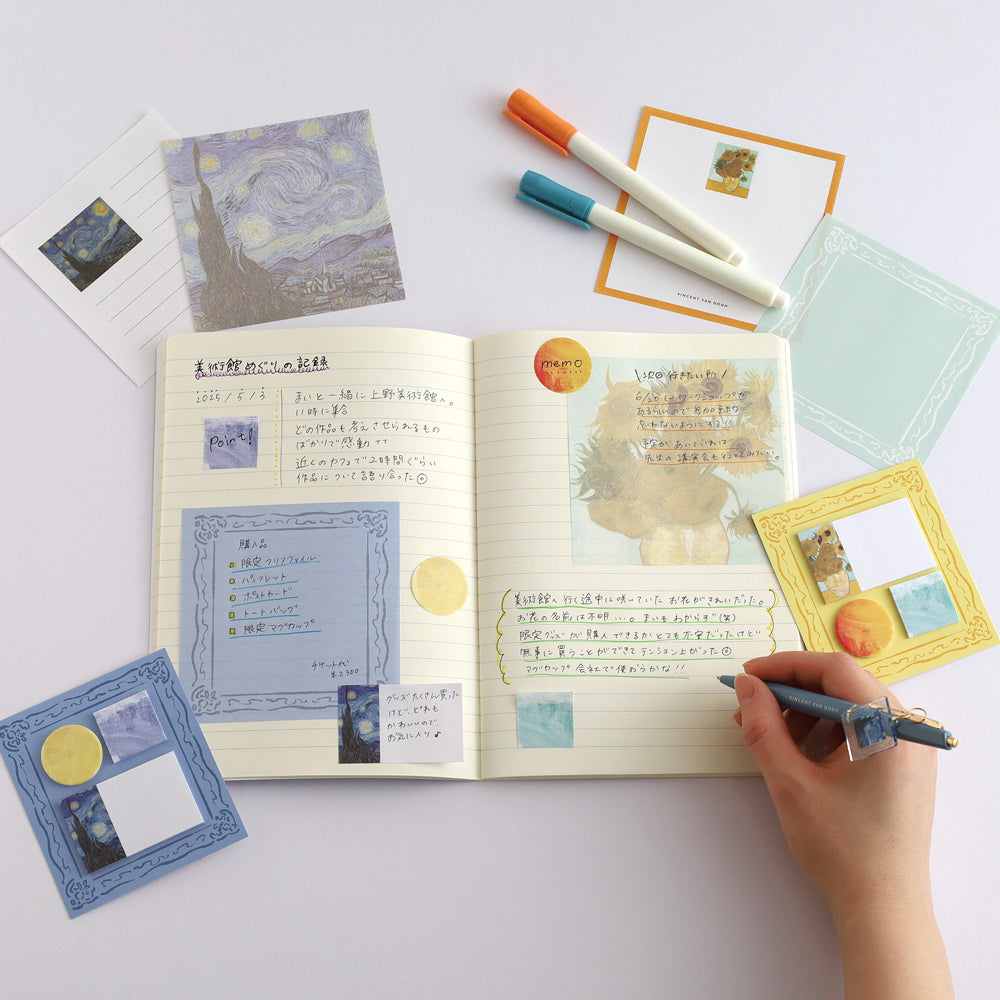 VINCENT VAN GOGH
美術館めぐりの記録
2025/5/3
まいと一緒に上野美術館へ。
11時に集合
どの作品も考えさせられるもの
ばかりで感動
近くのカフェで2時間ぐらい
作品について語り合った
Point!
購入品
限定クリアファイル
パンフレット
ポストカード
トートバッグ
限定マグカップ
チケット代
¥2300
グッズたくさん買った
けど、どれも
かわいいので
お気に入り♪
memo
\次回行きたい所/
6/20にワークショップが
あるらしいので
忘れないようにする!!
予定があいていれば
先生の講演会も行ってみたい。
美術館へ行く途中に咲いていたお花がきれいだった。
お花の名前は不明...。まいもわからず(笑)
限定グッズが購入できるかとても不安だったけど
無事に買うことができてテンション上がった
マグカップ会社で使おうかな!!
VINCENT VAN GOGH